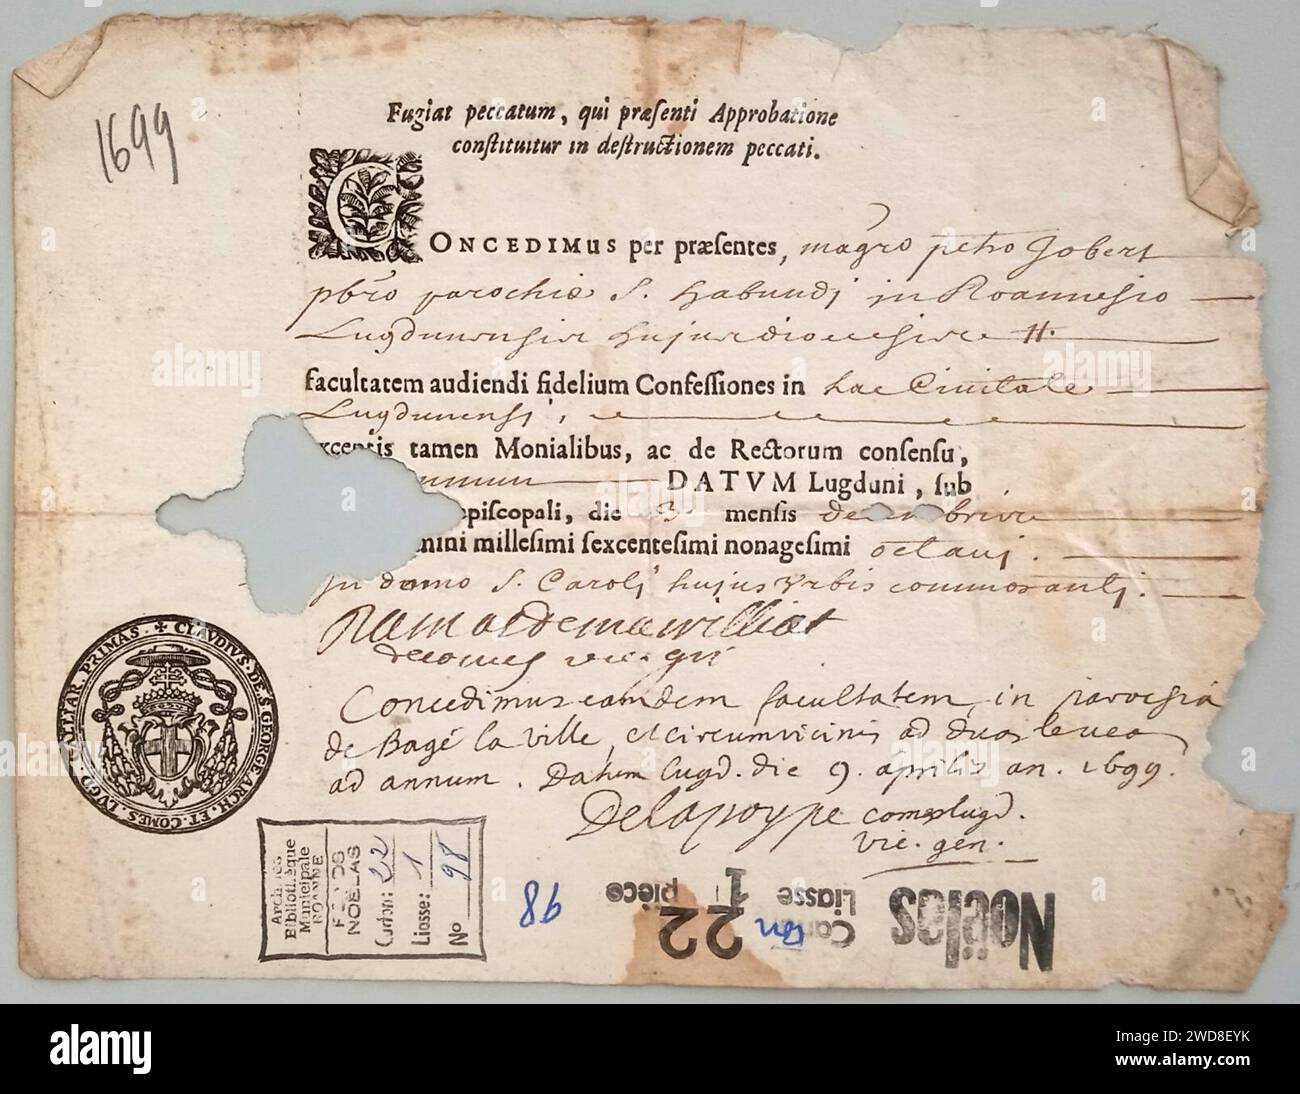 1699
Fugiat peccatum, qui præſenti Approbatione
conſtituitur in deſtructionem peccati.
CONCEDIMUS per præſentes, magro petro Jobert
pbro parochiæ S. habundj in Roannesio
Lugdunensis hujus diocesis
facultatem audiendi fidelium Confeſſiones in hac Civitate
Lugdunensj,
tamen Monialibus, ac de Rectorum conſenſu,
DATVM Lugduni, ſub
epiſcopali, die 3 menſis decembris
mini milleſimi ſexcenteſimi nonageſimi octavi.
In domo S. Carolj hujus Vrbis commoranti.
vic. gñ
Concedimus eamdem facultatem in parochia
de Bagé la ville, et circumvicinis ad duas leucas
ad annum. Datum lugd. die 9. aprilis an. 1699.
Delapoype comes lugd.
vic. gén.
CLAVDIVS. DE. S. GEORGE. ARCH. ET. COMES. LVGD. GALLIAR. PRIMAS.
Archives
Bibliothèque
Municipale
ROANNE
FONDS
NOËLAS
Carton: 22
Liasse: 1
No 98
98
Noëlas
Carton 22
Liasse 1
pièce
alamy
Image ID: 2WD8EYK
www.alamy.com